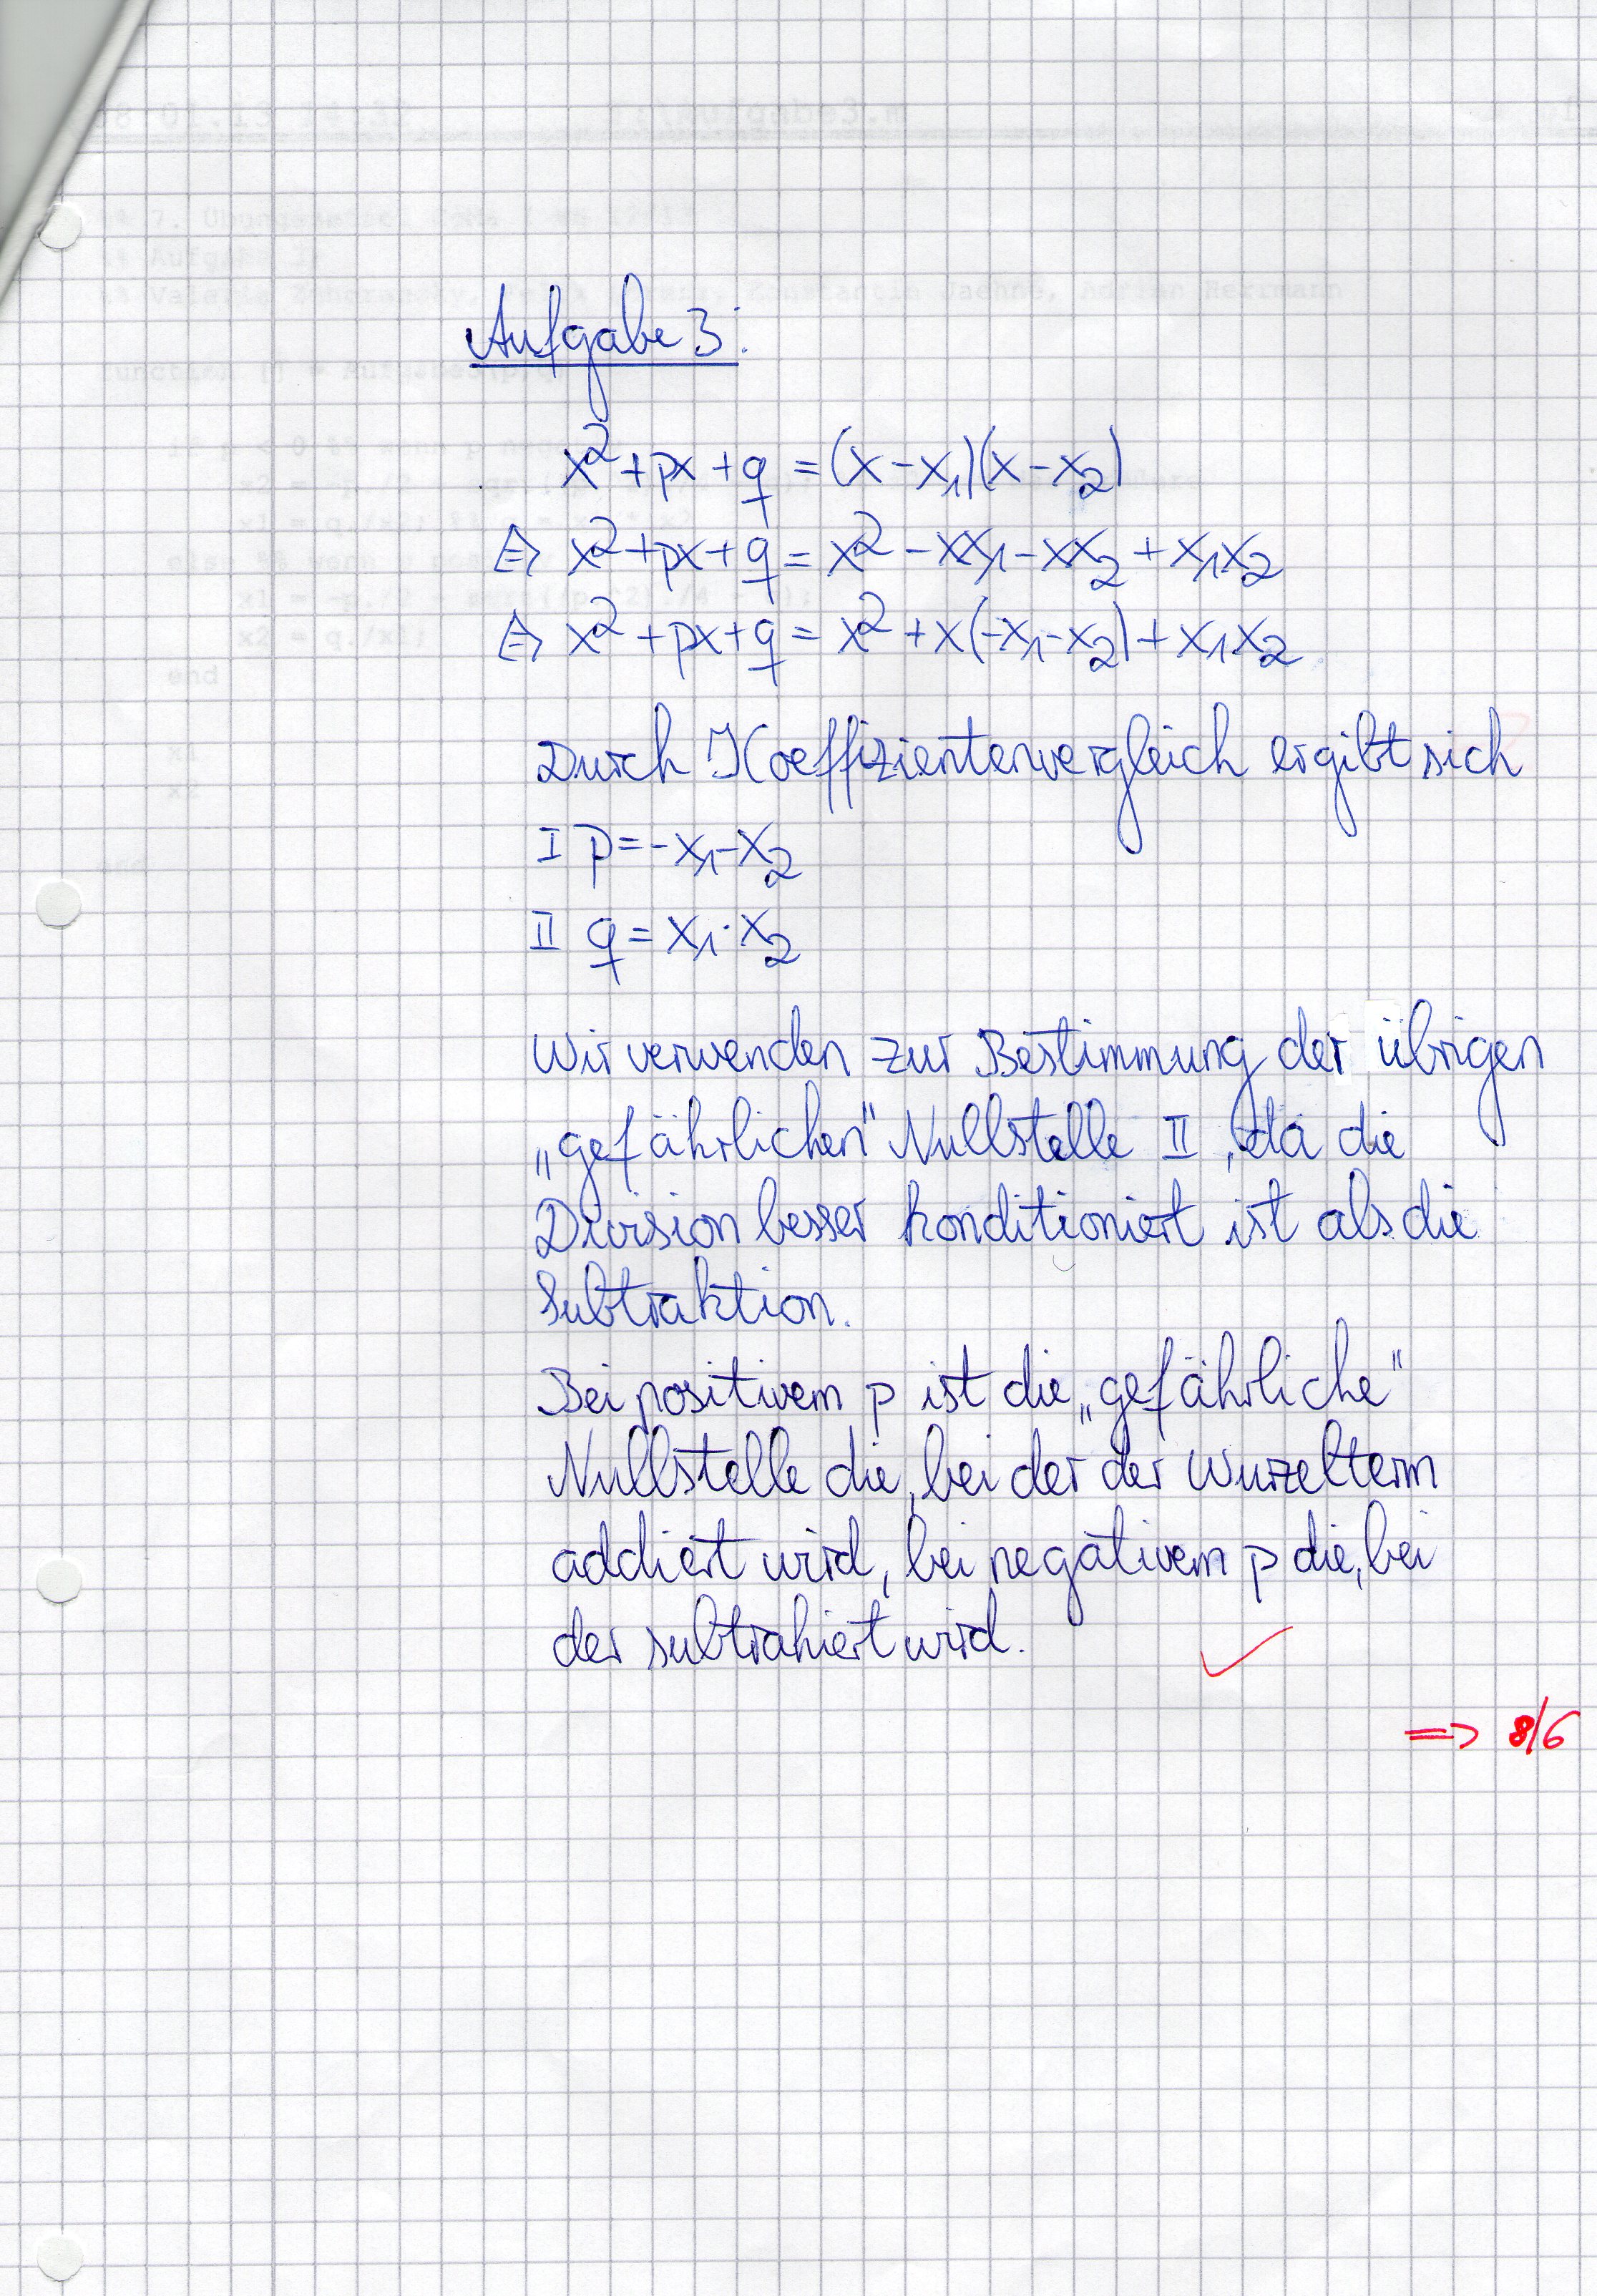 Aufgabe 3:
x²+px+q=(x-x₁)(x-x₂)
⇔ x²+px+q=x²-xx₁-xx₂+x₁x₂
⇔ x²+px+q=x²+x(-x₁-x₂)+x₁x₂
Durch Koeffizientenvergleich ergibt sich
I p=-x₁-x₂
II q=x₁·x₂
Wir verwenden zur Bestimmung der übrigen
„gefährlichen" Nullstelle II, da die
Division besser konditioniert ist als die
Subtraktion.
Bei positivem p ist die „gefährliche"
Nullstelle die, bei der der Wurzelterm
addiert wird, bei negativem p die, bei
der subtrahiert wird.
=> 8/6